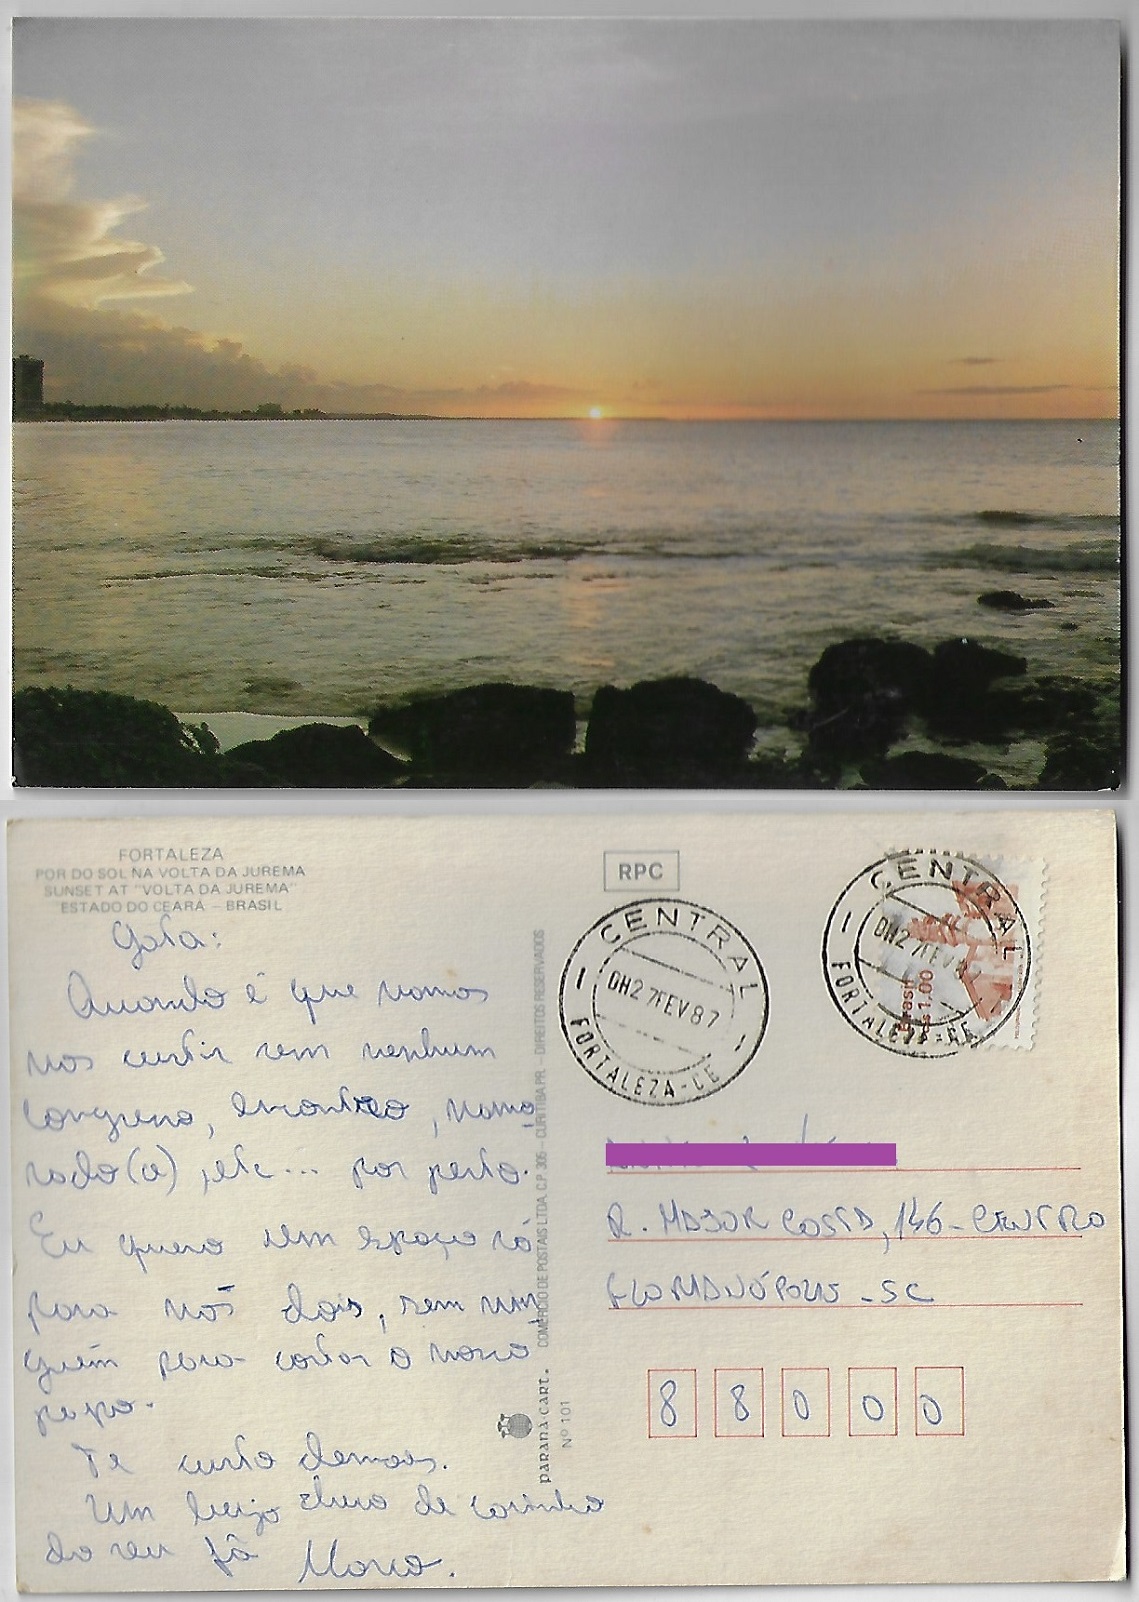 FORTALEZA
POR DO SOL NA VOLTA DA JUREMA
SUNSET AT "VOLTA DA JUREMA"
ESTADO DO CEARÁ – BRASIL
Gata:
Quando é que vamos
nos curtir sem nenhum
congresso, encontro, namo
rado(a), etc... por perto.
Eu quero um espaço só
para nós dois, sem nin
guém para cortar o nosso
papo.
Te curto demais.
Um beijo cheio de carinho
do seu fã
PARANA CART. COMERCIO DE POSTAIS LTDA. C.P. 305 – CURITIBA PR. – DIREITOS RESERVADOS
Nº 101
RPC
CENTRAL
0H27FEV87
FORTALEZA-CE
CENTRAL
0H27FEV8
FORTALEZA-CE
Brasil
1,00
R. MAJOR COSTA, 146 - CENTRO
FLORIANÓPOLIS - SC
88000